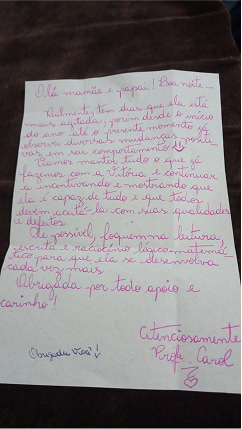 Olá mamãe e papai! Boa noite...
Realmente, tem dias que ela está
mais agitada, porém desde o início
do ano até o presente momento já
observei diversas mudanças positi-
vas em seu comportamento
Vamos manter tudo o que já
fazemos com a Vitória e continuar
a incentivando e mostrando que
ela é capaz de tudo e que todos
devem aceitá-la com suas qualidades
e defeitos.
Se possível, foquem na leitura,
escrita e raciocínio lógico-matemá-
tico para que ela se desenvolva
cada vez mais.
Obrigada por todo apoio e
carinho!
Atenciosamente
Profa. Carol
Obrigada